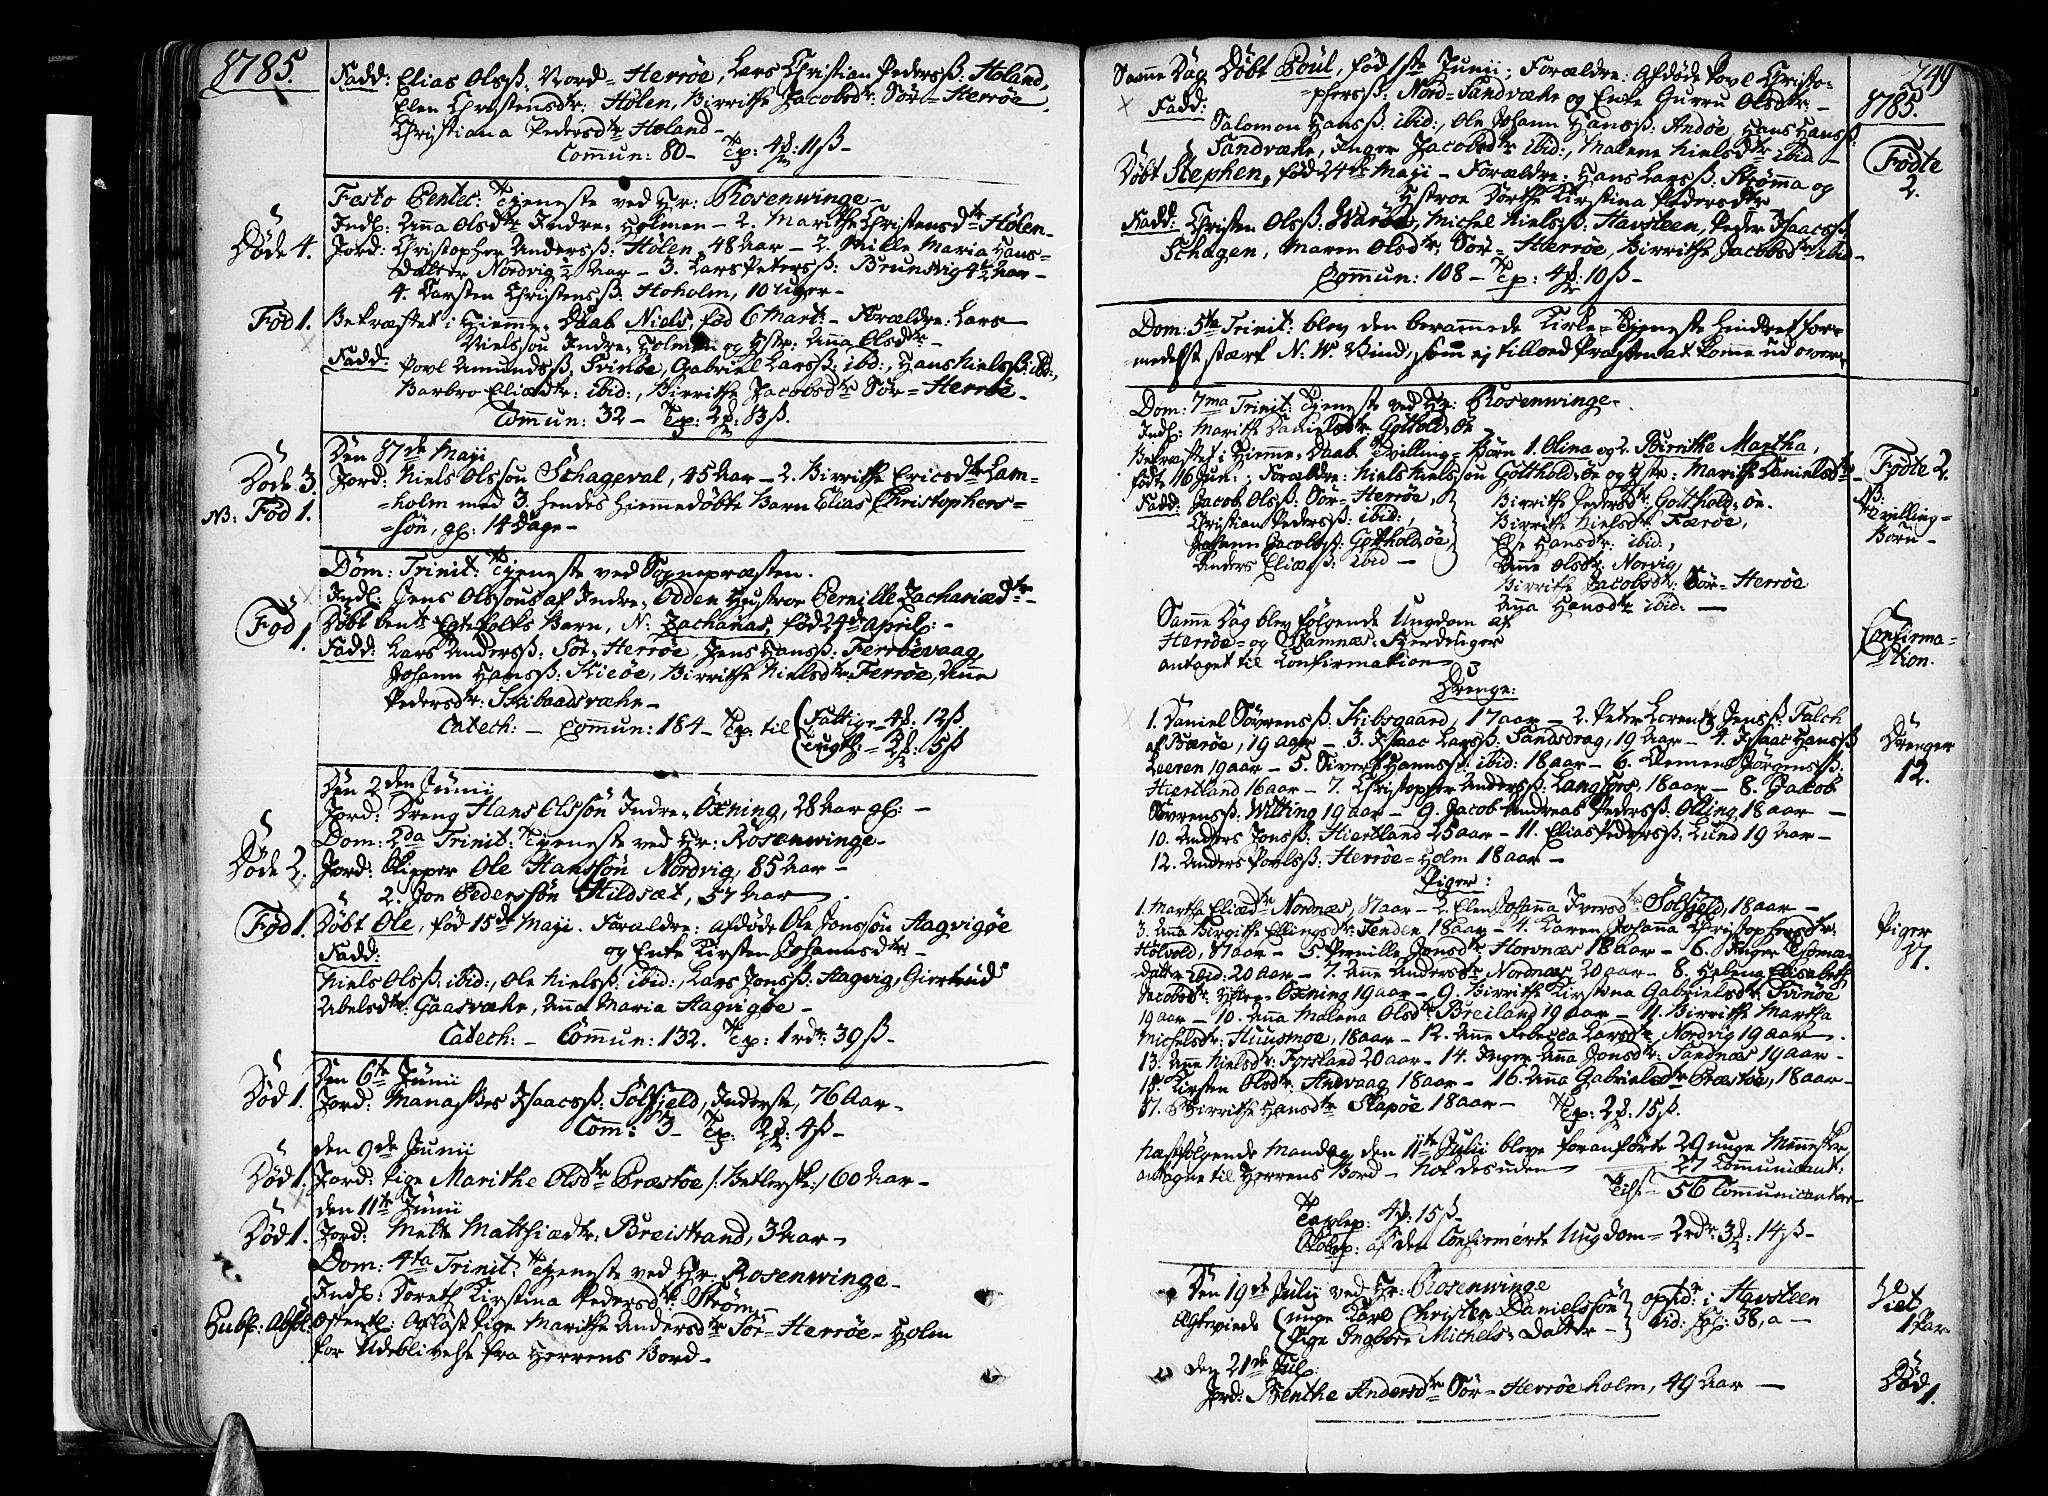 1785.
Fadd: Elias Olsß: Nord-Herrøe, Lars Christian Pedersß: Høland,
Elen Christensdtr: Hølen, Birrithe Jacobsdtr: Sör-Herröe,
Christiana Pedersdtr Høland-
Com̄un: 80- Tp: 4 11ß-
Festo Pentec: Tjeneste ved Hr: Rosenwinge-
Indl: Anna Olsdtr Indre-Holmen- 2. Marithe Christensdtr Hølen-
Døde 4. Jord: Christopher Andersß: Hølen, 48 Aar- 2. Mille Maria Hans-
datter Nordvig ½ Aar- 3. Lars Petersß: Brunsvig 4½ Aar-
4. Carsten Christensß: Høholm, 10 Uger-
Fød 1. Bekræftet i Hiemme-Daab Niels, fød 6 Mart:- Forældre: Lars
Nielssøn Indre-Holmen og Hstr: Anna Olsdtr-
Fadd: Povl Amundsß: Svinöe, Gabriel Larsß: ibd:, Hans Nielsß: ibd:,
Barbro Eliædtr: ibid:, Birrithe Jacobsdtr Sör-Herröe-
Com̄un: 32- Tp: 2 83ß.
Den 17de Maji
Døde 3. Jord: Niels Olssøn Schageval, 45 Aar- 2. Birrithe Ericsdtr Lam-
NB: Fød 1. -holm med 3. hendes hiemmedøbte Barn Elias Christophers-
-søn, gl: 14 Dage-
Dom: Trinit: Tjeneste ved Sognepræsten.
Indl: Jens Olssøns af Indre-Odden Hustroe Pernille Zachariædtr-
Fød 1. Døbt bente Barn, N: Zacharias, fød 24de April:-
Fadd: Lars Andersß: Sör-Herröe, Jens Hansß: Ferröevaag,
Johan̄ Hansß: Kieöe, Birrithe Nielsdtr: Ferröe, Anne
Pedersdtr: Skibaadsvæhr-
Catech:- Com̄un: 184- Tp: til Fattige- 4 12ß.
Tugth:- 2 5ß
Den 2den Junii
Jord: Dreng Hans Olssön Indre-Öxning, 28 Aar gl:-
Dom: 2da Trinit: Tjeneste ved Hr: Rosenwinge-
Døde 2. Jord: Skipper Ole Hanssön Nordvig, 85 Aar-
2. Jon Pederssön Hildsæt, 57 Aar
Fød 1. Døbt Ole, fød 15de Maji. Forældre: afdøde Ole Jonssøn Hagvigöe
og Enke Kirsten Johannsdtr-
Fadd:
Niels Olsß: ibid:, Ole Nielsß: ibid:, Lars Jonsß: Hagvig, Giertrud
Abelsdtr: Gaasvæhr, Anna Maria Hagvigöe-
Catech:- Com̄un: 132. Tp: 1 rdr: 39ß-
Den 6te Junii
Død 1. Jord: Manasses Isaacsß: Sölfjeld, Inderste, 76 Aar-
Com̄: 3- Tp: 2 4ß-
den 9de Junii
Død 1. Jord: Pige Marithe Olsdtr Præstøe /: Betlerske :/ 60 Aar-
den 11te Junii
Død 1. Jord: Mette Matthiædtr: Breistrand, 3 Aar-
Dom: 4ta Trinit: Tjeneste ved Hr: Rosenwinge-
Indl: Doreth Kirstina Pedersdtr: Ström̄-
Publ: Absol: Offentl: Afløst Pige Marithe Andersdtr Sör-Herröe-Holm
for Udeblivelse fra Herrens Bord-
249
1785.
Sam̄e Dag Døbt Poul, fød 1ste Junii; Forældre: Afdøde Povl Christo-
-phersß: Nord-Sandvæhr og Enke Gurru Olsdtr-
Fadd:
Salomon Hansß: ibid:, Ole Johan̄ Hansß: Andöe, Hans Hansß:
Sandvæhr, Inger Jacobsdtr ibid:, Malene Nielsdtr ibid-
Fødte 2.
Døbt Stephen, fød 24de Maji- Forældre: Hans Larsß: Ström̄a og
Hstroe Dorthe Kirstina Pedersdtr
Fadd: Christen Olsß: Waröe, Michel Nielsß: Havsteen, Peder Isaacsß
Schagen, Maren Olsdtr: Sör-Herröe, Birrithe Jacobsdtr ibid-
Com̄un: 108- Tp: 4 10ß-
Dom: 5te Trinit: blev den beram̄ede Kirke-Tjeneste hindret for-
-medelst stærk N. W. Vind, som ej tillod Præsten at kom̄e ud over-
Dom: 7ma Trinit: Tjeneste ved Hr: Rosenwinge-
Indl: Marithe Danielsdtr: Gothold-öe
Bekræftet i Hiemme-Daab Tvilling-Børn 1. Olina og 2. Birrithe Martha,
fødte 16 Jun:; Forældre: Niels Nielssøn Gotthold-öe og Hstr: Marithe Danielsdtr-
Fødte 2.
NB.
Tvilling-
Børn-
Fadd: Jacob Olsß: Sör-Herröe,
Christian Pedersß: ibid:,
Johan̄ Jacobsß: Gothold-öe,
Anders Eliæsß: ibid-
Birrithe Pedersdtr: Gotthold-öe.
Birrithe Nielsdtr: Færöe,
Else Hansdtr: ibid:,
Anne Olsdtr: Norvig,
Birrithe Jacobsdtr: Sör-Herröe
Anna Hansdtr ibid:-
Sam̄e Dag blev følgende Ungdom af
Herröe- og Stamnæs-Fjerdinger
antaget til Confirmation-
Confirma-
-tion.
Drenge:
1. Daniel Sörensß: Kibsgaard, 17 aar- 2. Peter Lorentz Jensß: Falch
af Bæröe, 19 aar- 3. Isaac Larsß: Sandsdrag, 19 aar- 4. Isaac Hansß
Leeren 19 aar- 5. Sivert Han̄sß: ibid: 18 aar- 6. Clemens Jörgensß:
Hiertland 16 aar- 7. Christopher Andersß: Langsörs, 18 aar- 8. Jakob
Sörensß: Wilting 19 aar- 9. Jacob Andreas Pedersß: Olting 18 aar-
10. Anders Jonsß: Hiertland 25 aar- 11. Elias Pedersß: Lund 19 Aar-
12. Anders Povlsß: Herröe-Holm 18 aar-
Drenger
12.
Piger:
1. Martha Eliædtr Nordnæs, 17 aar- 2. Elen Johan̄a Iversdtr Sölfjeld, 18 aar-
3. Anna Birgithe Ellingsdtr: Tenden 18 aar- 4. Karen Johan̄a Christophersdtr:
Holvold, 17 aar- 5. Pernille Jonsdtr: Hornæs 18 aar- 6. Inger Thomæ-
datter ibid: 20 Aar- 7. Anne Andersdtr: Nordnæs 20 aar- 8. Helena Elisabeth
Jacobsdtr: Yttre-Öxning 19 aar- 9. Birrithe Kirstina Gabrielsdtr: Svinöe
19 aar- 10. Anna Malena Olsdtr: Breiland 19 aar- 11. Birrithe Martha
Michelsdtr: Huusmoe, 18 aar- 12. Anne Rebecca Larsdtr: Nordvig 19 aar-
13. Anne Nielsdtr: Forsland 20 aar- 14. Inger Anna Jonsdtr: Sandnæs 19 aar-
15. Kirsten Olsdtr: Andvaag 18 aar- 16. Anna Gabrielsdtr: Præstøe, 18 aar-
17. Birrithe Hansdtr Skapöe 18 aar- Tp: 2 15ß.
Piger
17.
Næstfølgende Mandag den 11te Julii bleve foranførte 29 unge Mennesker
antagne til Herrens Bord- Nok desuden- 27 Com̄unicant:
Tils:- 56 Com̄unicantere
Tavlep: 4 15ß-
af den Confirmerte Ungdom- 2 rdr: 3 14ß-
Den 19de Julii ved Hr: Rosenwinge
Ægteviede unge Karl Christen Danielssön
Pige Ingbore Michels-Datter-
opsidr: i Havsteen
vid: 38, a-
Viet
1 Par
Den 21de Jul:
Jord: Benthe Andersdtr Sör-Herröeholm, 49 Aar-
Død 1.